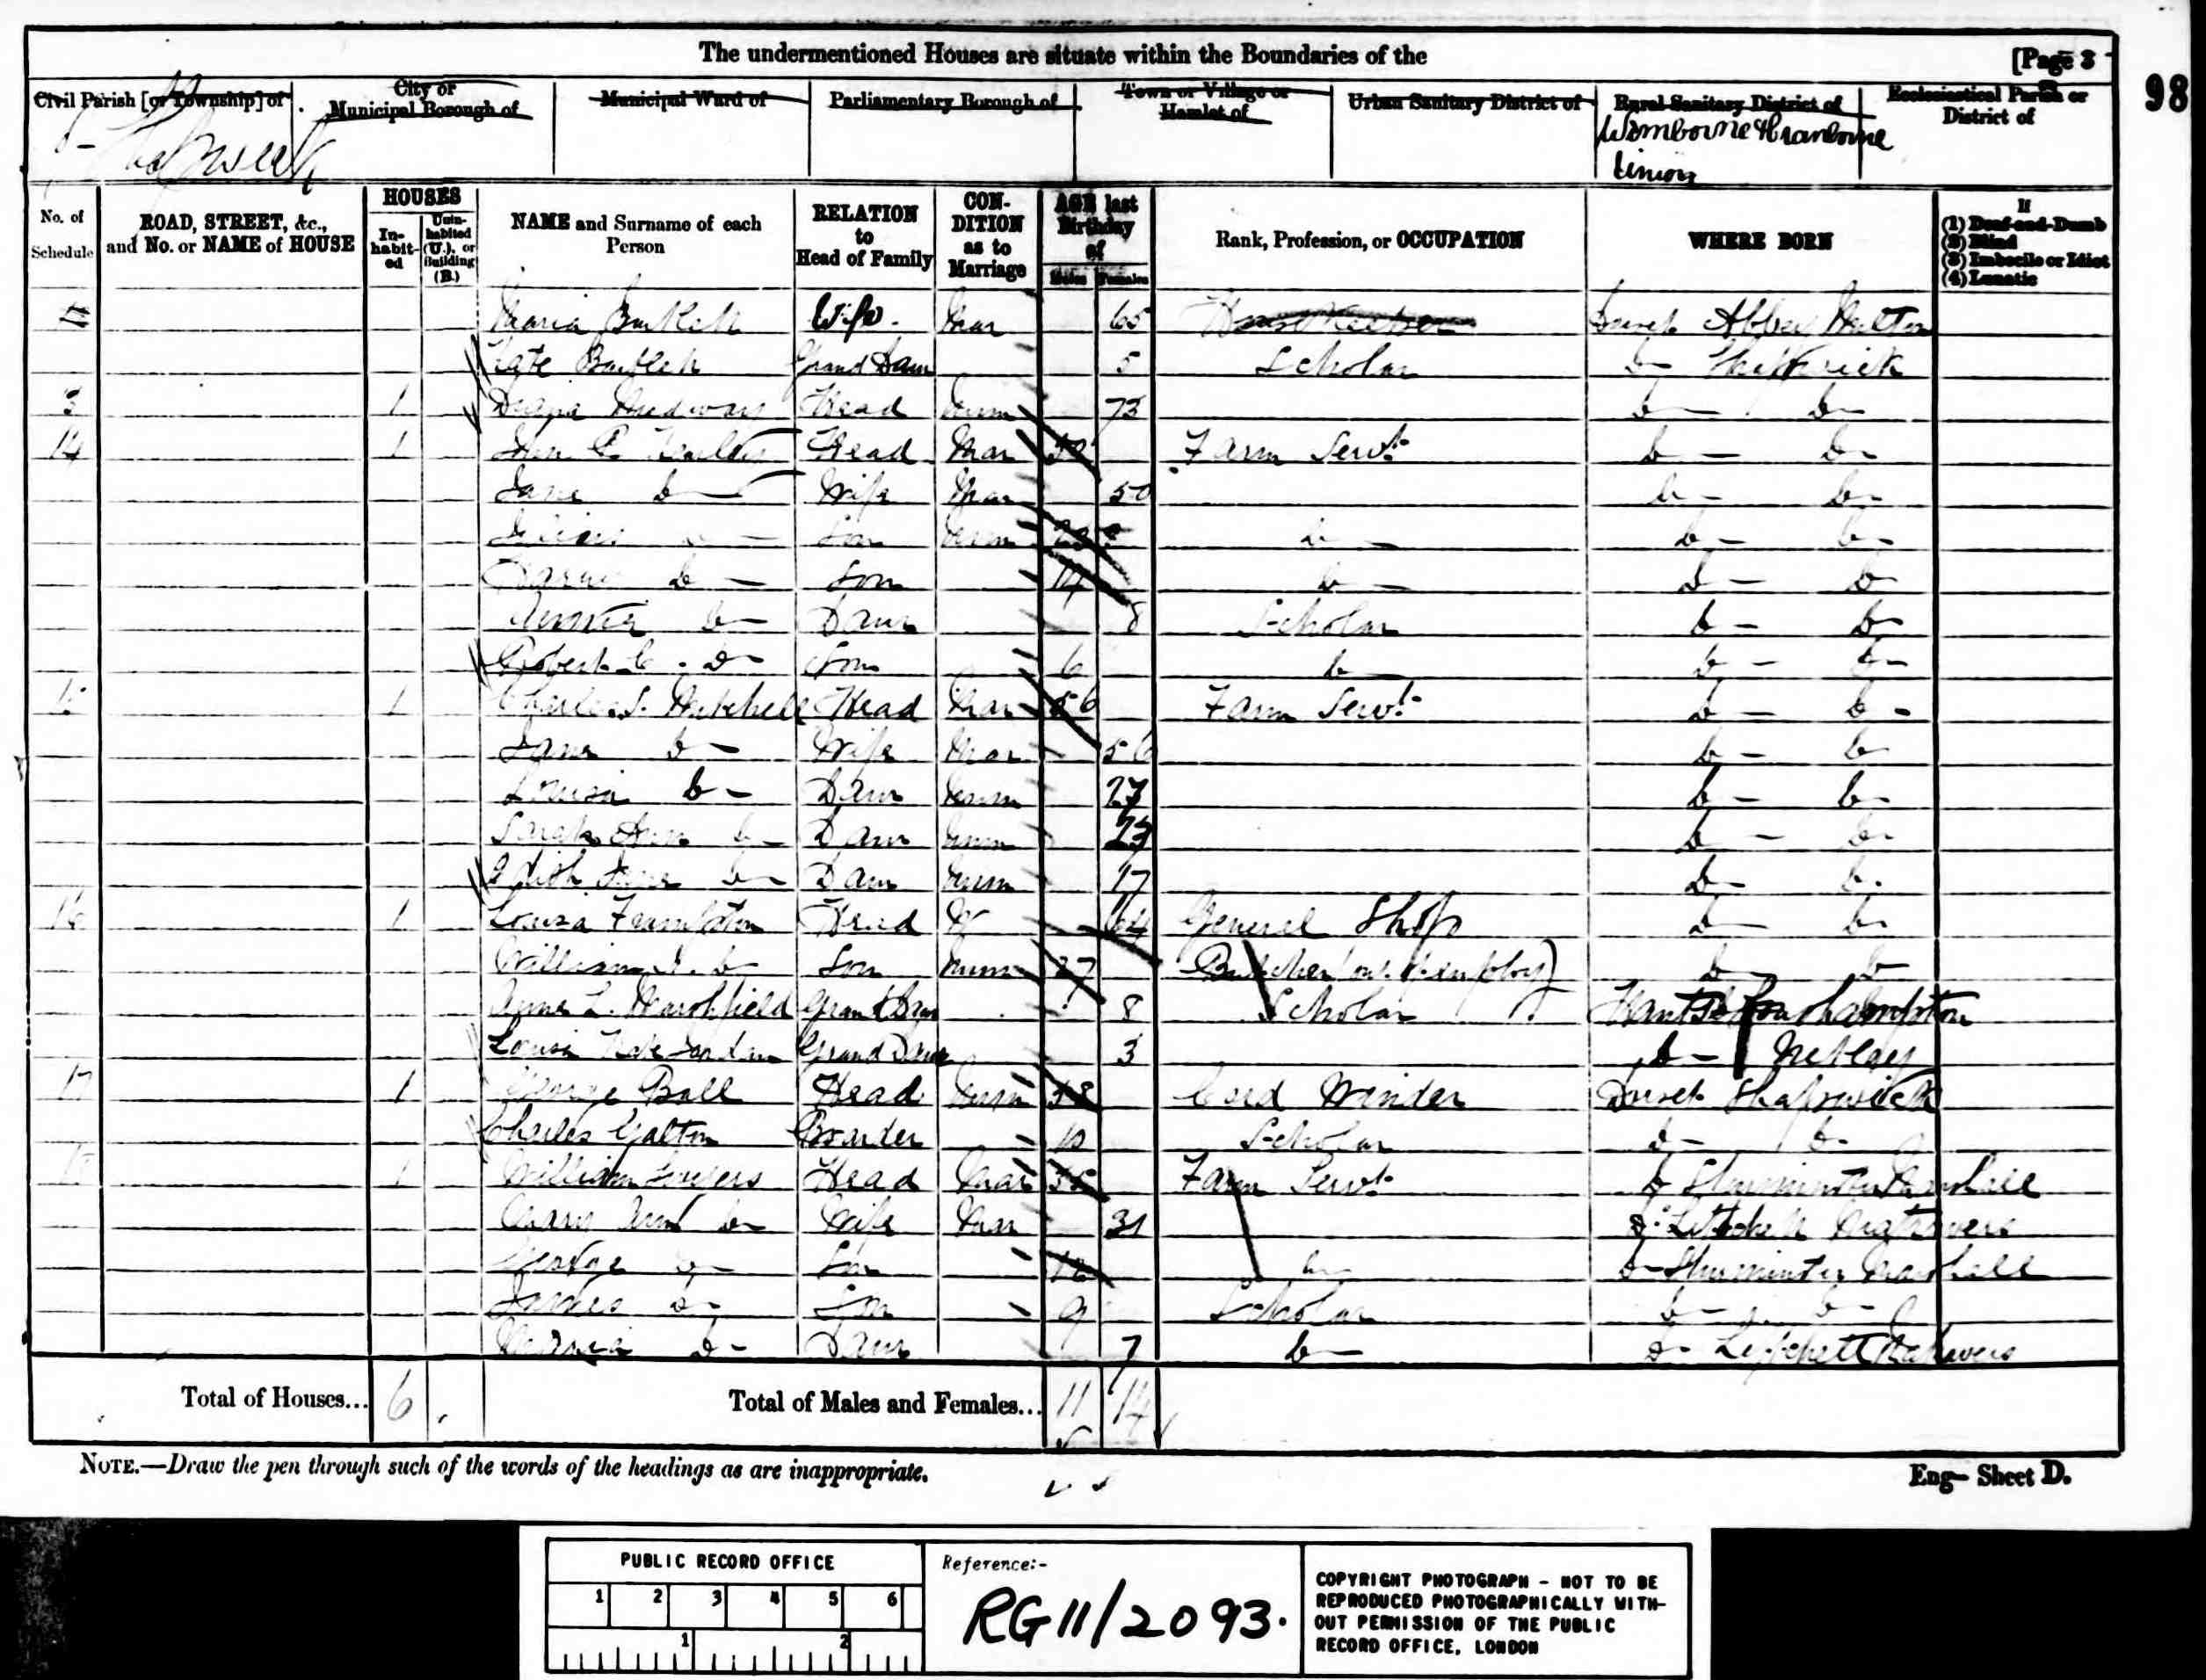 The undermentioned Houses are situate within the Boundaries of the [Page 3
98
Civil Parish [or Township] of City or Municipal Borough of Municipal Ward of Parliamentary Borough of Town or Village or Hamlet of Urban Sanitary District of Rural Sanitary District of Ecclesiastical Parish or District of
Shapwick Wimborne & Cranborne Union
No. of Schedule ROAD, STREET, &c., and No. or NAME of HOUSE HOUSES In-habit-ed Unin-habited (U.), or Building (B.) NAME and Surname of each Person RELATION to Head of Family CON-DITION as to Marriage AGE last Birthday of Males Females Rank, Profession, or OCCUPATION WHERE BORN If (1) Deaf-and-Dumb (2) Blind (3) Imbecile or Idiot (4) Lunatic
Maria Bartlett Wife Mar 65 Housekeeper Dorset Abbey Milton
Kate Bartlett Grand Daur 5 Scholar Do Shapwick
1 Head Unm 73 Do Do
14 1 Head Mar Farm Servt Do Do
Jane Do Wife Mar 50 Do Do
Do Son Unm Do Do Do
Do Son 14 Do Do Do
Do Daur 8 Scholar Do Do
Robert C. Do Son 6 Do Do Do
1 Charles S. Mitchell Head Mar 56 Farm Servt Do Do
Jane Do Wife Mar 56 Do Do
Louisa Do Daur Unm 27 Do Do
Sarah Ann Do Daur Unm Do Do
Edith Jane Do Daur Unm 17 Do Do
16 1 Louisa Frampton Head W 64 General Shop Do Do
William J. Do Son Unm 27 Butcher (out of employ) Do Do
Anna L. Marshfield Grand Daur 8 Scholar Hants Southampton
Louisa Kate Grand Daur 3 Do Netley
17 1 George Ball Head Unm Cord Winder Dorset Shapwick
Charles Galton Boarder 10 Scholar Do Do
18 1 William Head Mar Farm Servt Do Sturminster Marshall
Mary Ann Do Wife Mar 31 Do Litchett Matravers
George Do Son Do Do Sturminster Marshall
James Do Son 9 Scholar Do Do
Maria Do Daur 7 Do Do Litchett Matravers
Total of Houses... 6 Total of Males and Females... 11 14
NOTE.—Draw the pen through such of the words of the headings as are inappropriate. Eng— Sheet D.
PUBLIC RECORD OFFICE
1 2 3 4 5 6
1 2
Reference:-
RG 11/2093.
COPYRIGHT PHOTOGRAPH - NOT TO BE
REPRODUCED PHOTOGRAPHICALLY WITH-
OUT PERMISSION OF THE PUBLIC
RECORD OFFICE, LONDON